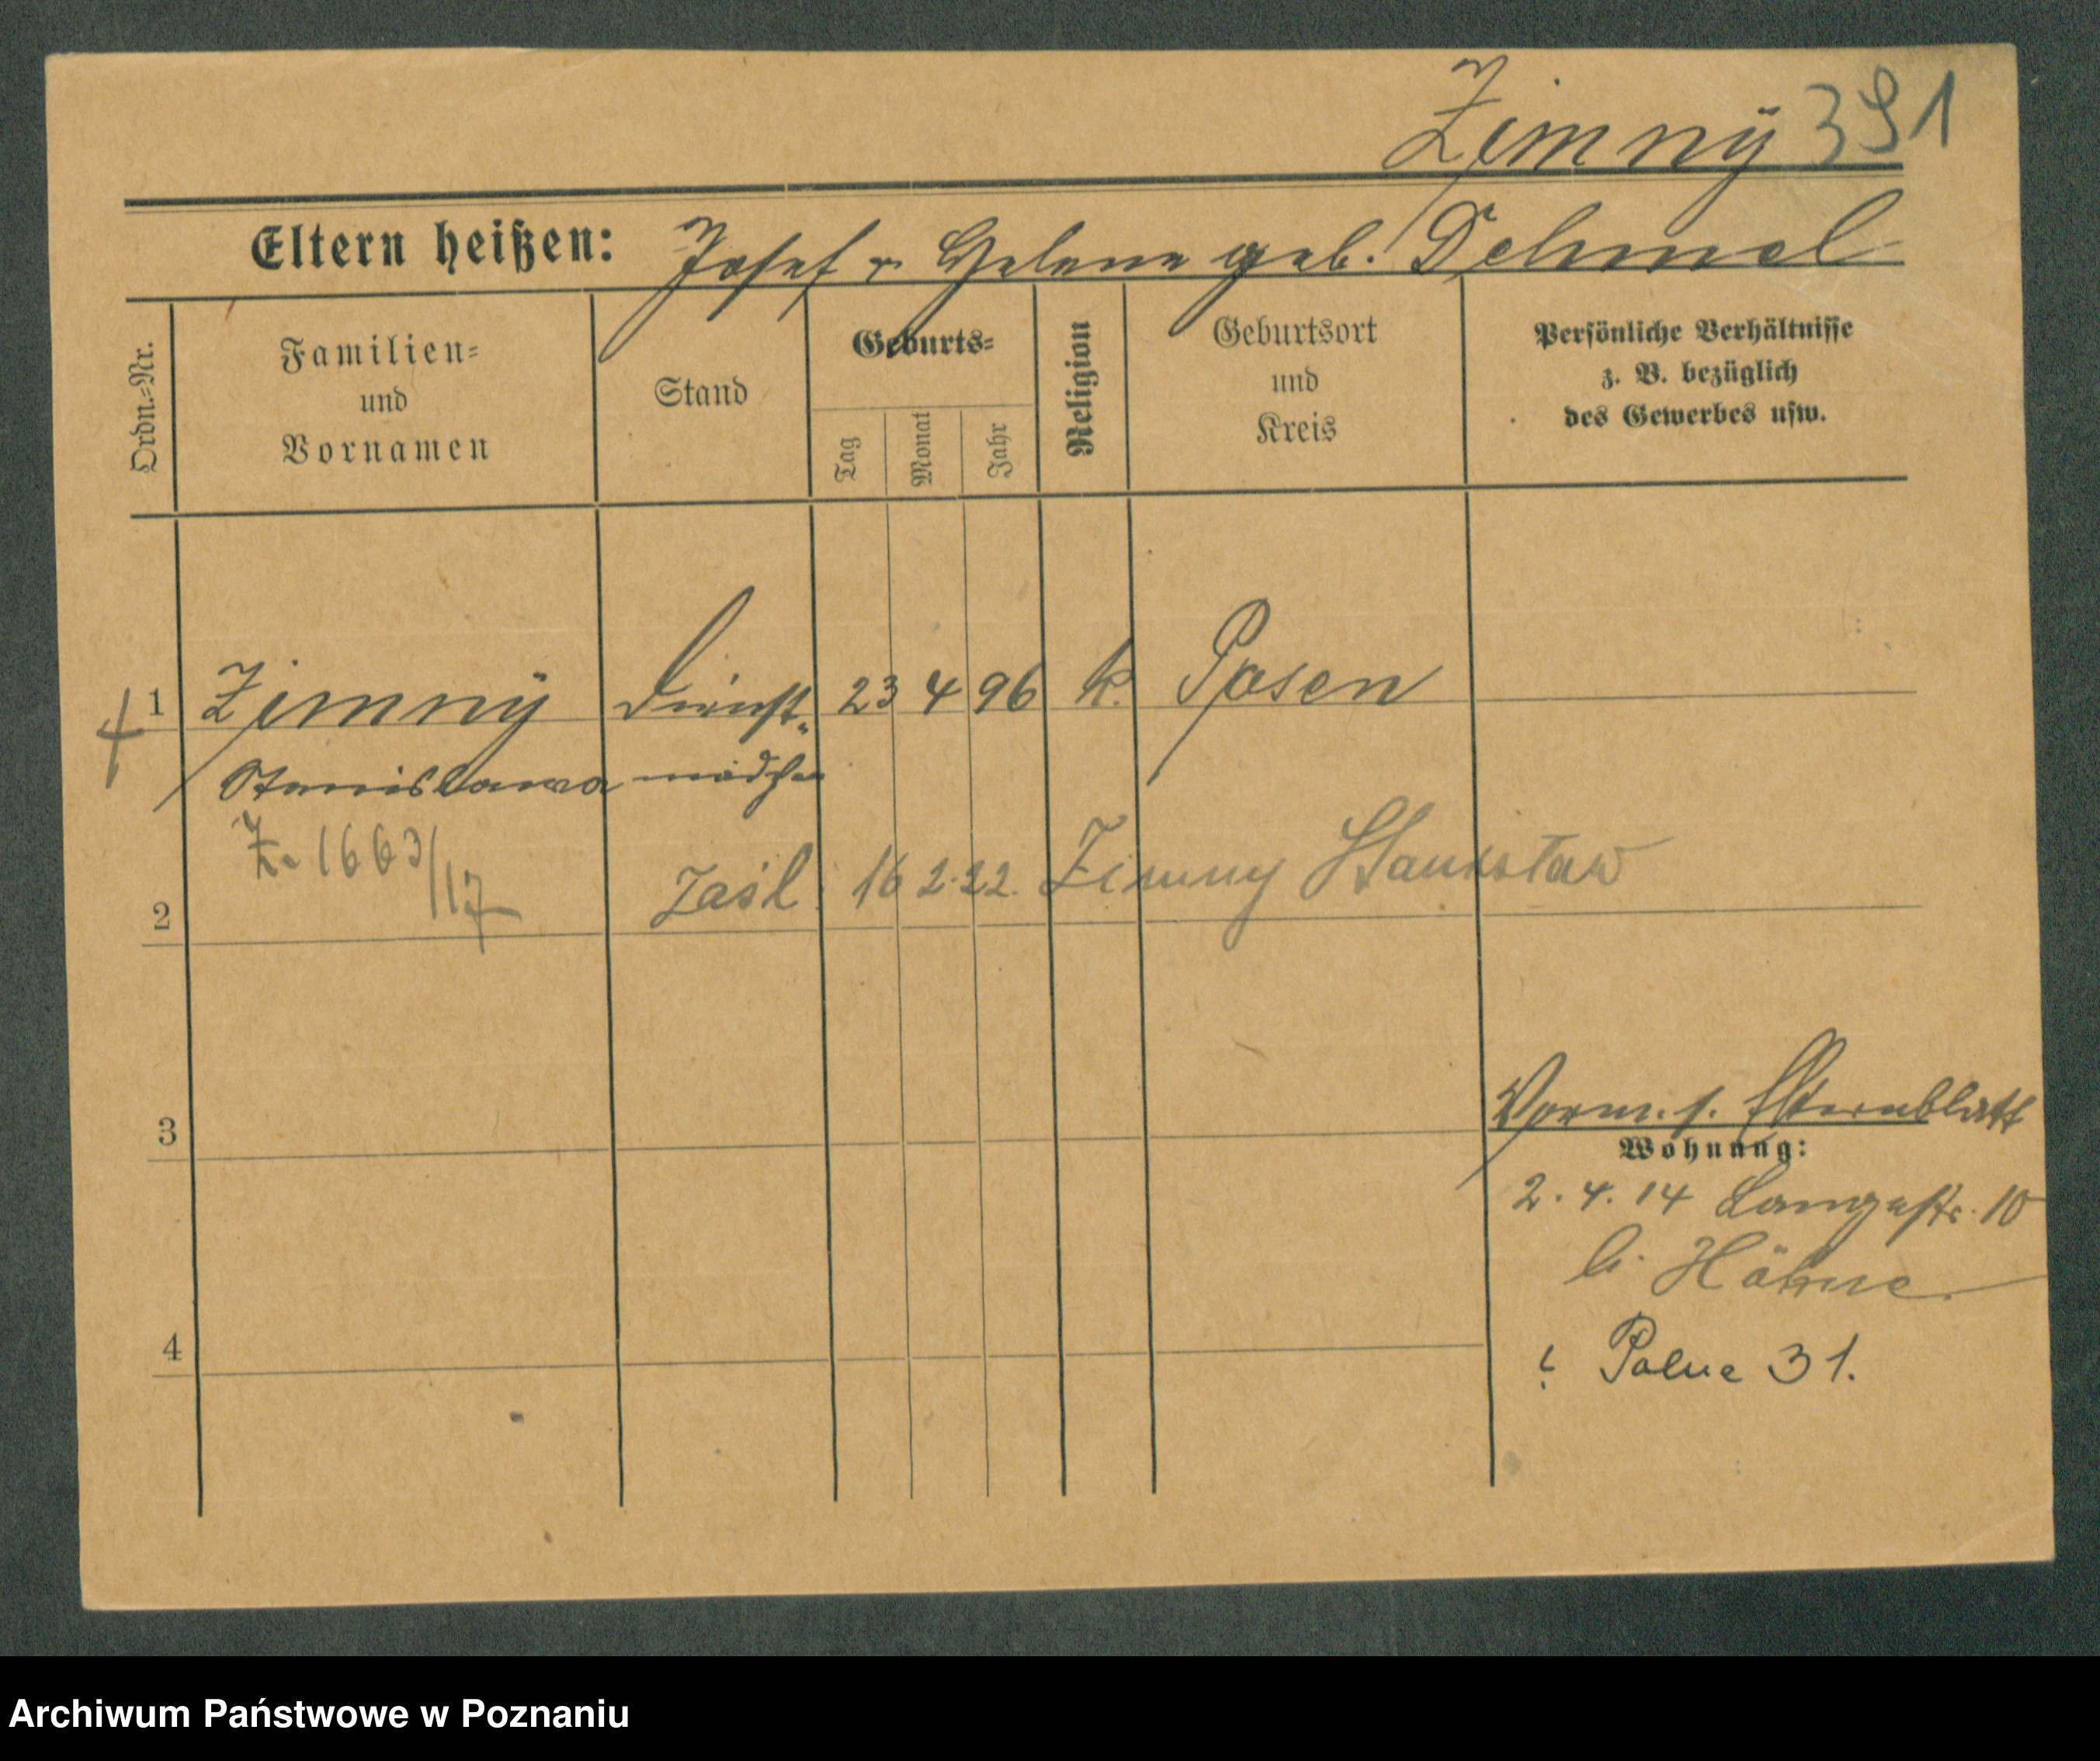 Zimnÿ 391
Eltern heißen: Josef u Helene geb. Dehmel
Ordn.=Nr.
Familien=
und
Vornamen
Stand
Geburts=
Tag
Monat
Jahr
Religion
Geburtsort
und
Kreis
Persönliche Verhältnisse
z. B. bezüglich
des Gewerbes usw.
1 Zimnÿ Dienst= 23 4 96 k. Posen
Stanislawa mädchen
Z. 1663/17
2 Zaśl. 16 2. 22. Zimny Stanisław
3 Vorm. s. Elternblatt
Wohnung:
2. 4. 14 Langestr. 10
b. Hähne
4 Polna 31.
Archiwum Państwowe w Poznaniu